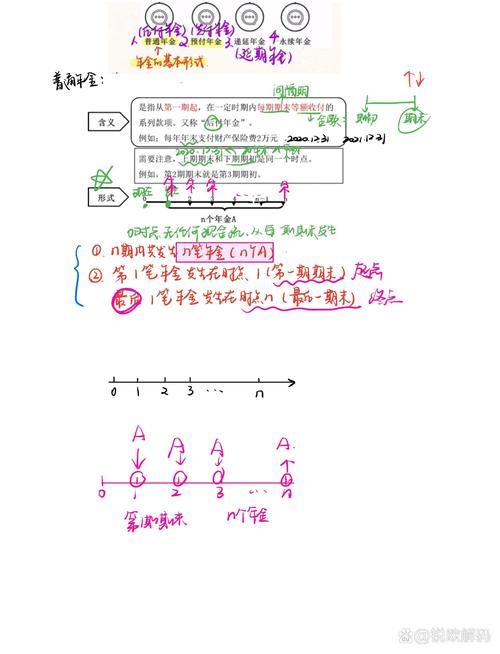 (后付年金) (先付年金)
1. 普通年金 2. 预付年金 3. 递延年金 4 永续年金
年金的基本形式 (延期年金)
普通年金：
间隔期
含义
是指从第一期起，在一定时期内每期期末等额收付的
系列款项。又称“后付年金”。
例如：每年年末支付财产保险费2万元
金额：
期初 期末
2020.12.31 2021.12.31
需要注意，上期期末和下期期初是同一个时点。
例如：第2期期末就是第3期期初。
形式
现在
0 1 2 3 4 …… n-1 n
n个年金A
0时点无任何现金流，从每期期末发生
①. n期内共发生n笔年金(n个A)
②. 第1笔年金发生在时点1(第一期期末) 起点
最后1笔年金发生在时点n(最后一期期末) 终点
0 1 2 3 … n
A A A A
0 1 2 3 … n
第1期期末 n个年金
锐欧解码